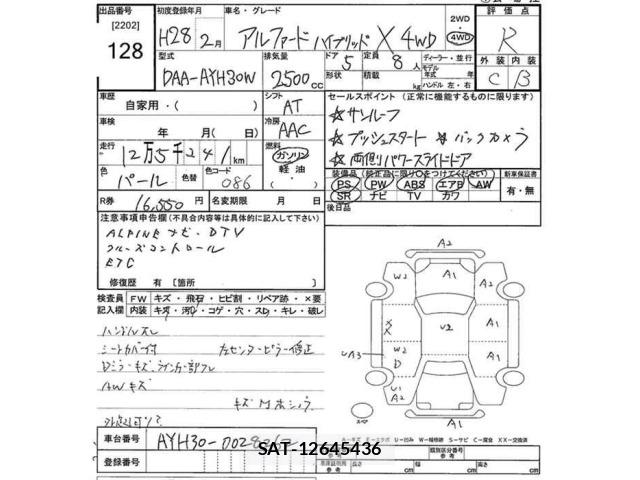 出品番号 [2202] 128
初度登録年月 H28 2月
車名・グレード アルファード ハイブリッド X 4WD
2WD ・ 4WD
評価点 R
型式 DAA-AYH30W
排気量 2500 cc
ドア 5
形状
定員 8人
積載 kg
ディーラー・並行
モデル年式 年式
ハンドル 左・右
外装 内装
C B
車歴 自家用・( )
シフト AT
車検 年 月( 日)
冷房 AAC
走行 12万5千241km
燃料 ガソリン
軽油
・( )
色 パール
色替
色コード 086
R券 16,550円
名変期限 月 日
セールスポイント (正常に機能するものに限ります)
☆サンルーフ
☆プッシュスタート ☆バックカメラ
☆両側パワースライドドア
装備品 (純正品に限り○をつけてください)
新車保証書
PS ・ PW ・ ABS ・ エアB ・ AW
SR ・ ナビ ・ TV ・ カワ
有・無
後日品
注意事項申告欄 (不具合内容等は具体的に記入して下さい)
ALPINEナビ・DTV
クルーズコントロール
ETC
修復歴 有 [箇所 ]
検査員記入欄
FW キズ・飛石・ヒビ割・リペア跡・X要
内装 キズ・汚レ・コゲ・穴・スレ・キレ・破レ
ハンドルスレ
シートカバー付 左センターピラー修正
Dミラーキズ、ウインカー部ワレ
AWキズ
A2
A1
W2
A1
XX
U2
A1
UA3
W2
D
A1
U1
A2
A1
A2
スペア
車台番号 AYH30-0028
登録番号
SAT-12645436
車種区分番号
長さ cm
幅 cm
高さ cm